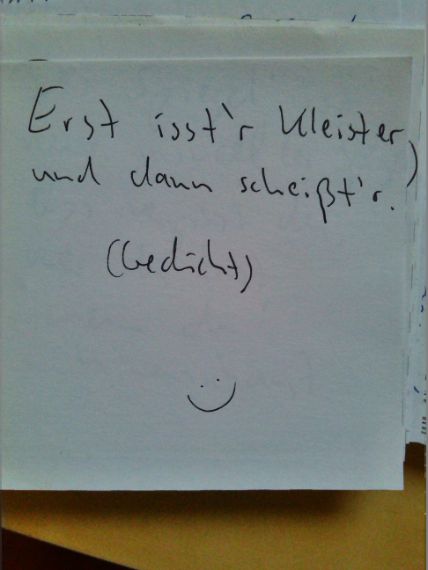 Erst isst'r Kleister,
und dann scheißt'r.
(Gedicht)